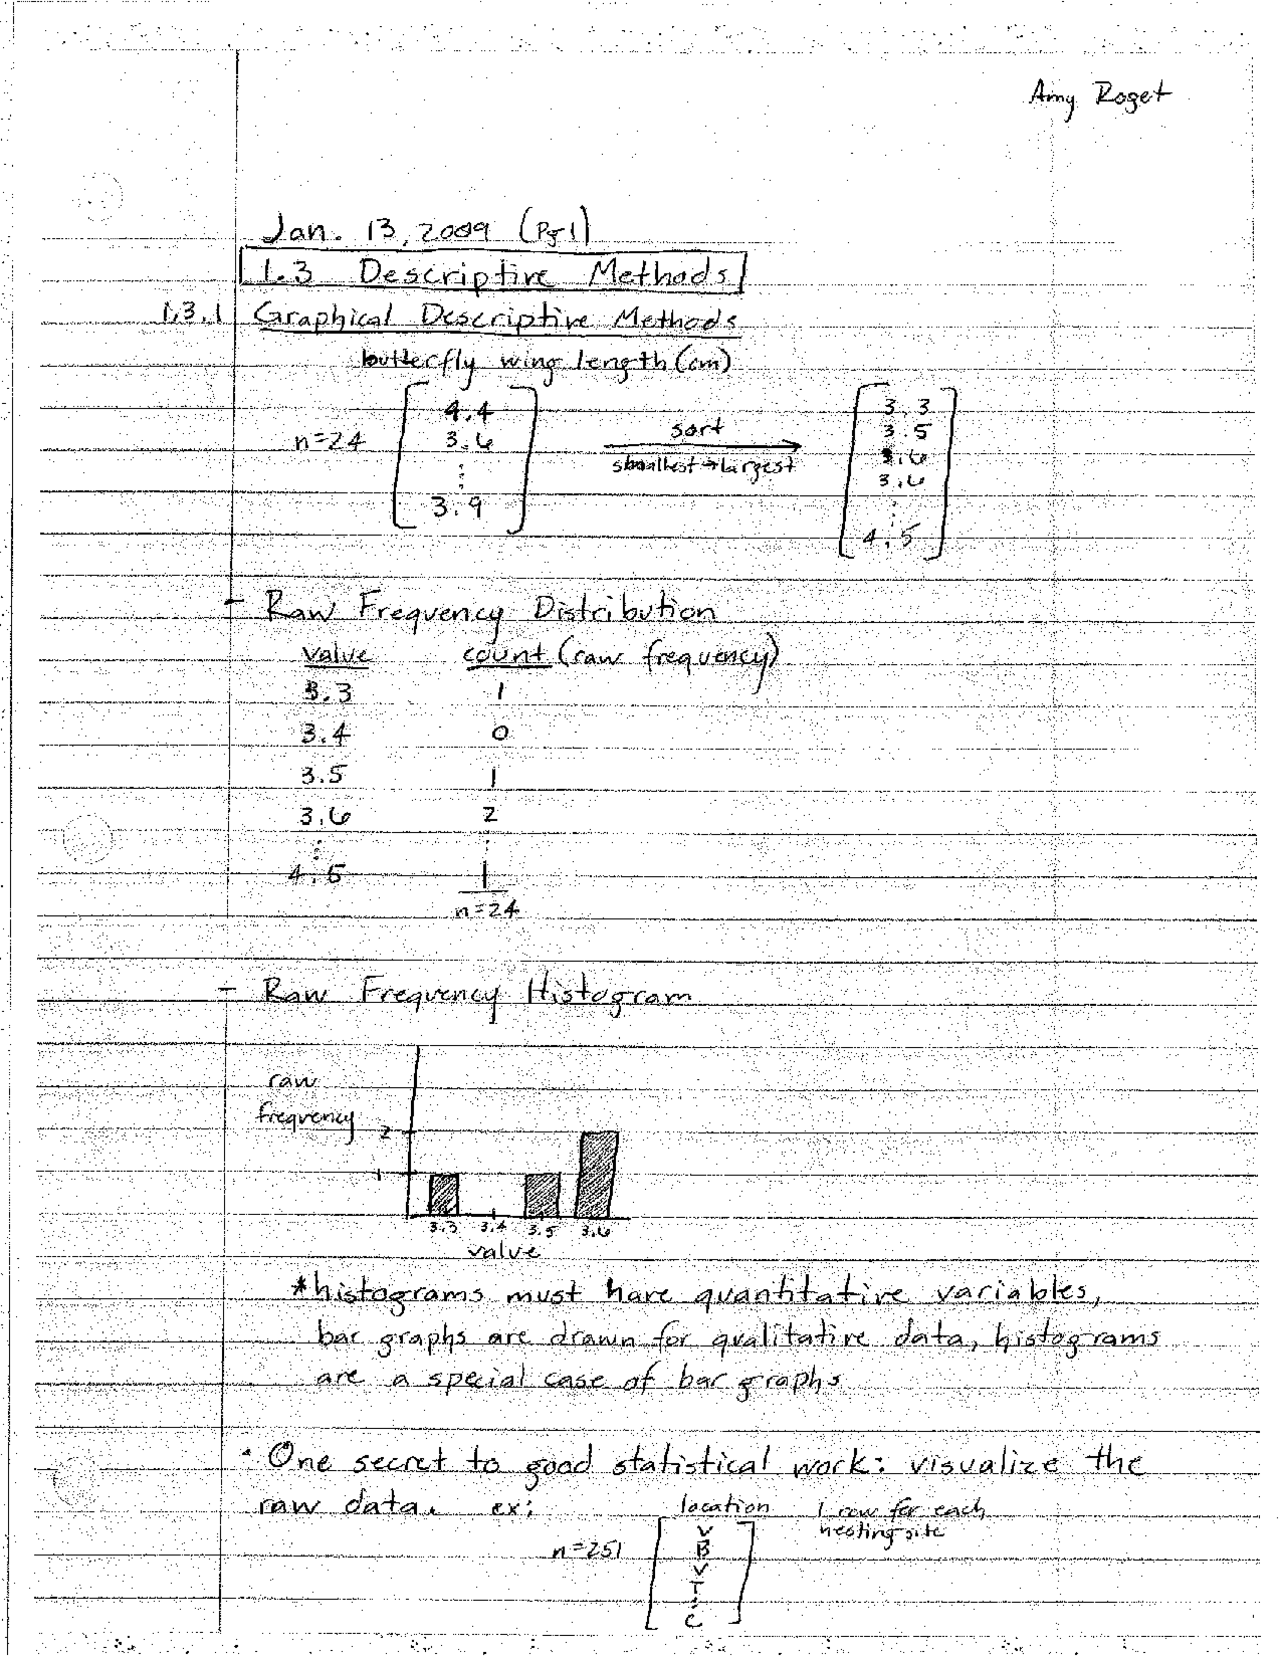 Amy Roget
Jan. 13, 2009 (Pg 1)
1.3 Descriptive Methods
1.3.1 Graphical Descriptive Methods
butterfly wing length (cm)
n=24 [4.4 3.6 ⋮ 3.9] sort smallest→largest [3.3 3.5 3.6 3.6 ⋮ 4.5]
- Raw Frequency Distribution
value count (raw frequency)
3.3 1
3.4 0
3.5 1
3.6 2
⋮ ⋮
4.5 1
n=24
- Raw Frequency Histogram
raw
frequency
2
1
3.3 3.4 3.5 3.6
value
*histograms must have quantitative variables,
bar graphs are drawn for qualitative data, histograms
are a special case of bar graphs
· One secret to good statistical work: visualize the
raw data. ex:
location 1 row for each
nesting site
n=251 [V B V T ⋮ C]